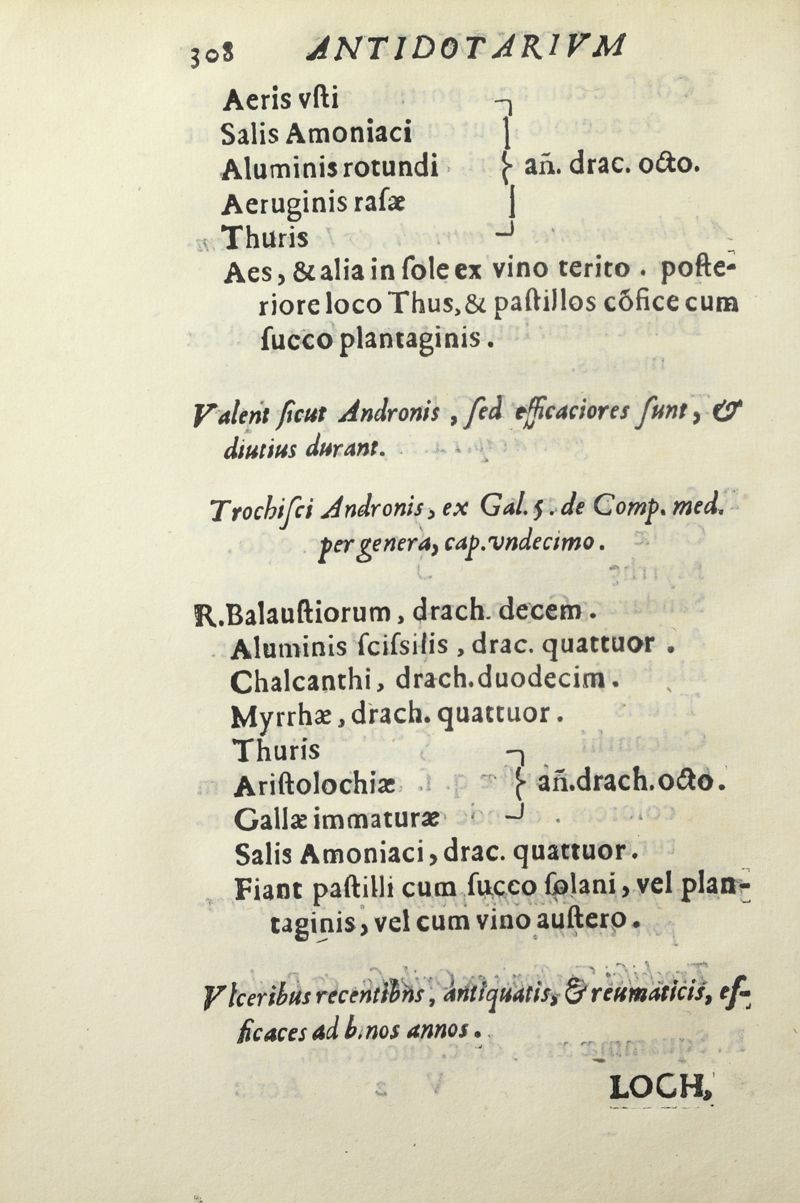 308 ANTIDOTARIVM
Aeris vſti
Salis Amoniaci
Aluminis rotundi } añ. drac. octo.
Aeruginis raſæ
Thuris
Aes, & alia in ſole ex vino terito. poſte-
riore loco Thus, & paſtillos cõfice cum
ſucco plantaginis.
Valent ſicut Andronis, ſed efficaciores ſunt, &
diutius durant.
Trochiſci Andronis, ex Gal. 5. de Comp. med.
per genera, cap. vndecimo.
R. Balauſtiorum, drach. decem.
Aluminis ſciſsilis, drac. quattuor.
Chalcanthi, drach. duodecim.
Myrrhæ, drach. quattuor.
Thuris
Ariſtolochiæ } añ. drach. octo.
Gallæ immaturæ
Salis Amoniaci, drac. quattuor.
Fiant paſtilli cum ſucco ſolani, vel plan-
taginis, vel cum vino auſtero.
Vlceribus recentibus, antiquatis, & reumaticis, ef-
ficaces ad binos annos.
LOCH,